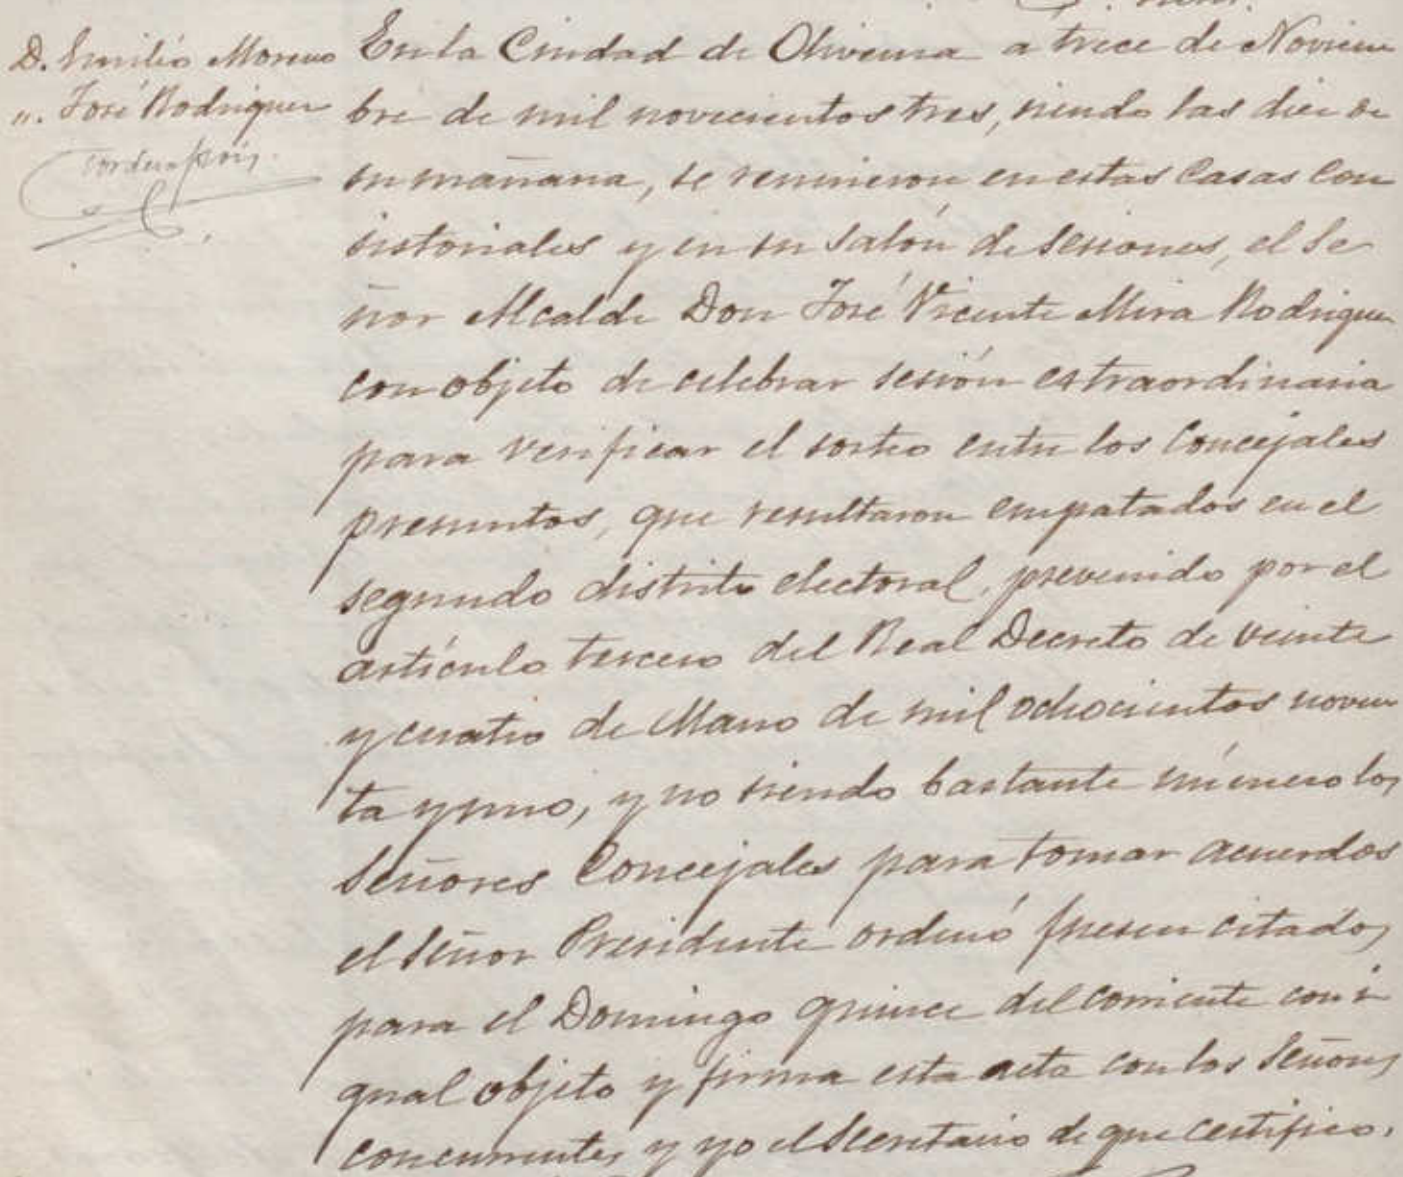 D. Emilio Moreno
". José Rodriguez
En la Ciudad de Olivenza a trece de Noviem
bre de mil novecientos tres, siendo las diez de
su mañana, se reunieron en estas Casas Con
sistoriales y en su Salón de Sesiones, el Se
ñor Alcalde Don José Vicente Mira Rodriguez
con objeto de celebrar sesión estraordinaria
para verificar el sorteo entre los Concejales
presuntos, que resultaron empatados en el
segundo distrito electoral, prevenido por el
artículo tercero del Real Decreto de veinte
y cuatro de Marzo de mil ochocientos noven
ta y uno, y no siendo bastante número los
Señores Concejales para tomar acuerdos
el Señor Presidente ordenó fuesen citados
para el Domingo quince del corriente con i
gual objeto y firma esta acta con los Señores
concurrentes y yo el Secretario de que certifico.